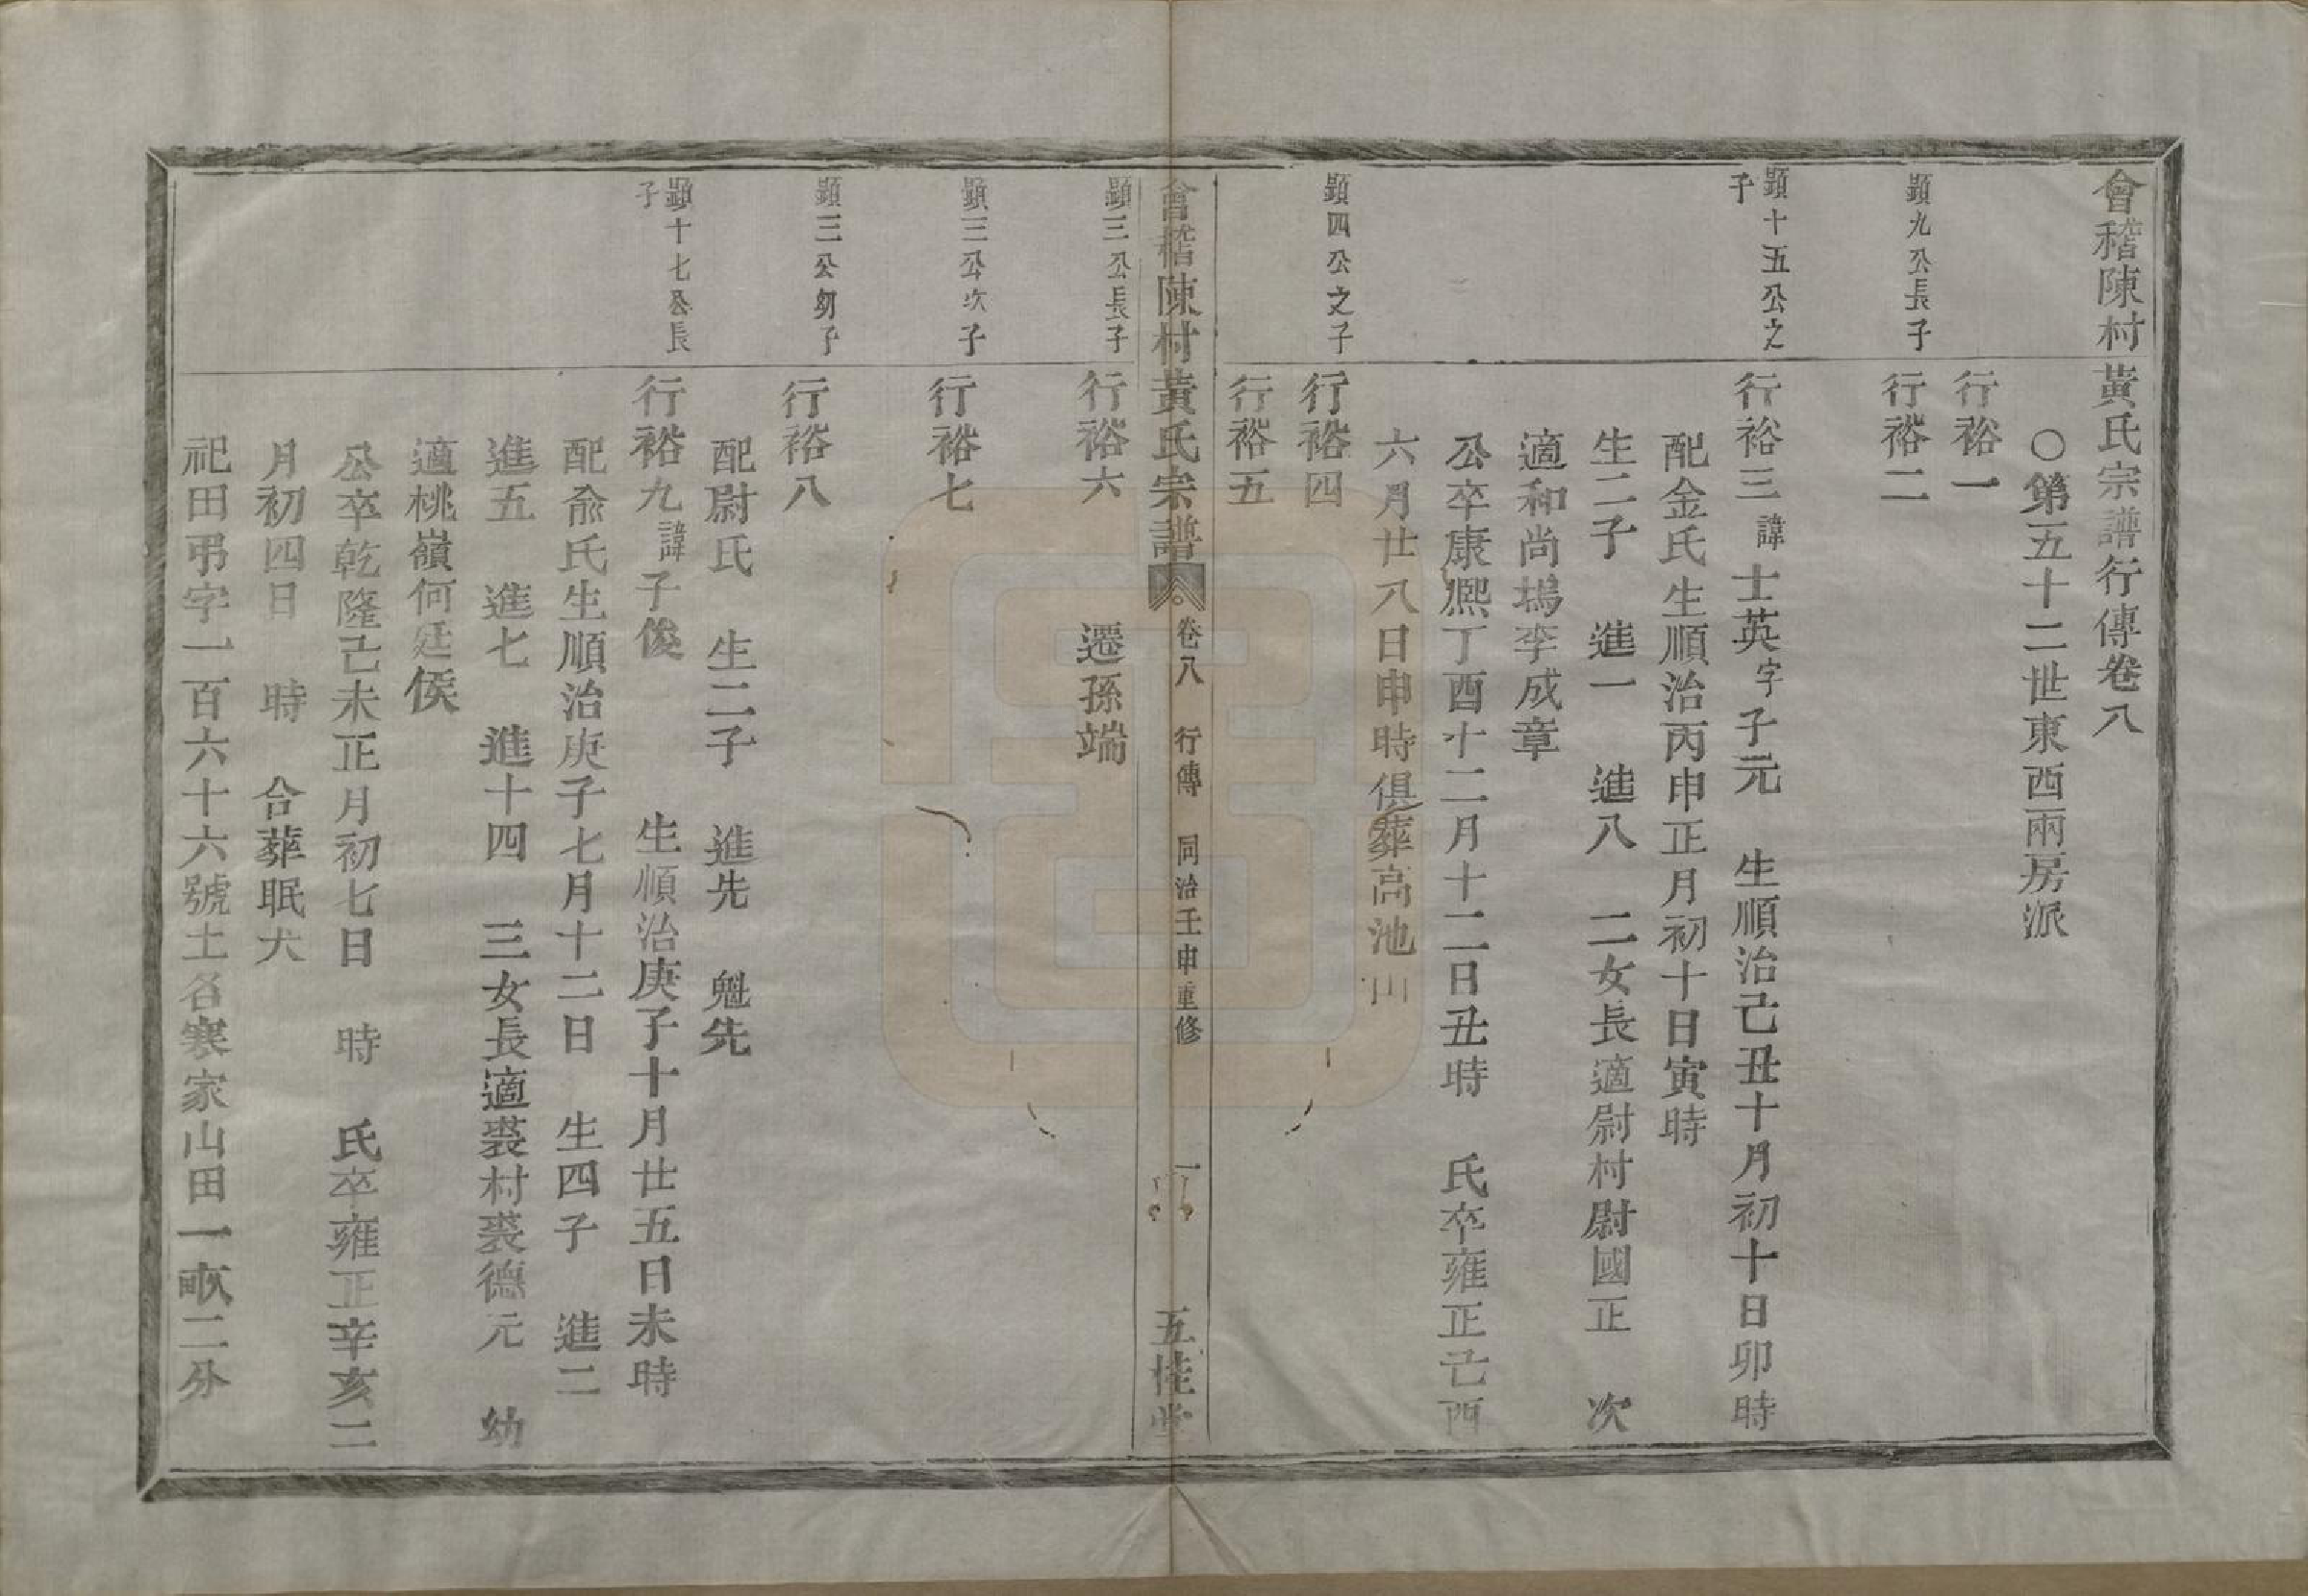 會稽陳村黃氏宗譜行傳卷八
○第五十二世東西兩房派
行裕一
顯九公長子
行裕二
顯十五公之子
行裕三諱士英字子元 生順治己丑十月初十日卯時
配金氏生順治丙申正月初十日寅時
生二子 進一 進八 二女長適尉村尉國正 次
適和尚塢李成章
公卒康熙丁酉十二月十二日丑時 氏卒雍正己酉
六月廿八日申時俱葬高池山
顯四公之子
行裕四
行裕五
會稽陳村黃氏宗譜 卷八 行傳 同治壬申重修 一 五桂堂
顯三公長子
行裕六 遷孫端
顯三公次子
行裕七
顯三公幼子
行裕八
配尉氏 生二子 進先 魁先
顯十七公長子
行裕九諱子俊 生順治庚子十月廿五日未時
配俞氏生順治庚子七月十二日 生四子 進二
進五 進七 進十四 三女長適裘村裘德元 幼
適桃嶺何廷侯
公卒乾隆己未正月初七日 時 氏卒雍正辛亥二
月初四日 時 合葬眠犬
祀田弔字一百六十六號土名寒家山田一畝二分